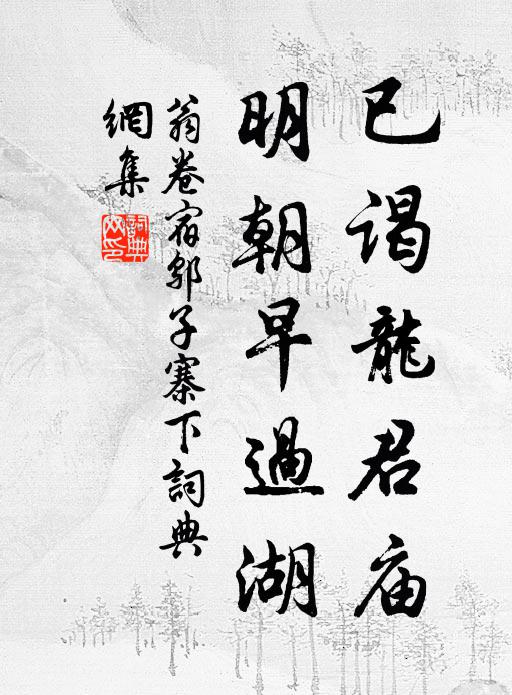 已谒龍君庙
明朝早過湖
翁卷宿鄔子寨下詞典
網集
詞典